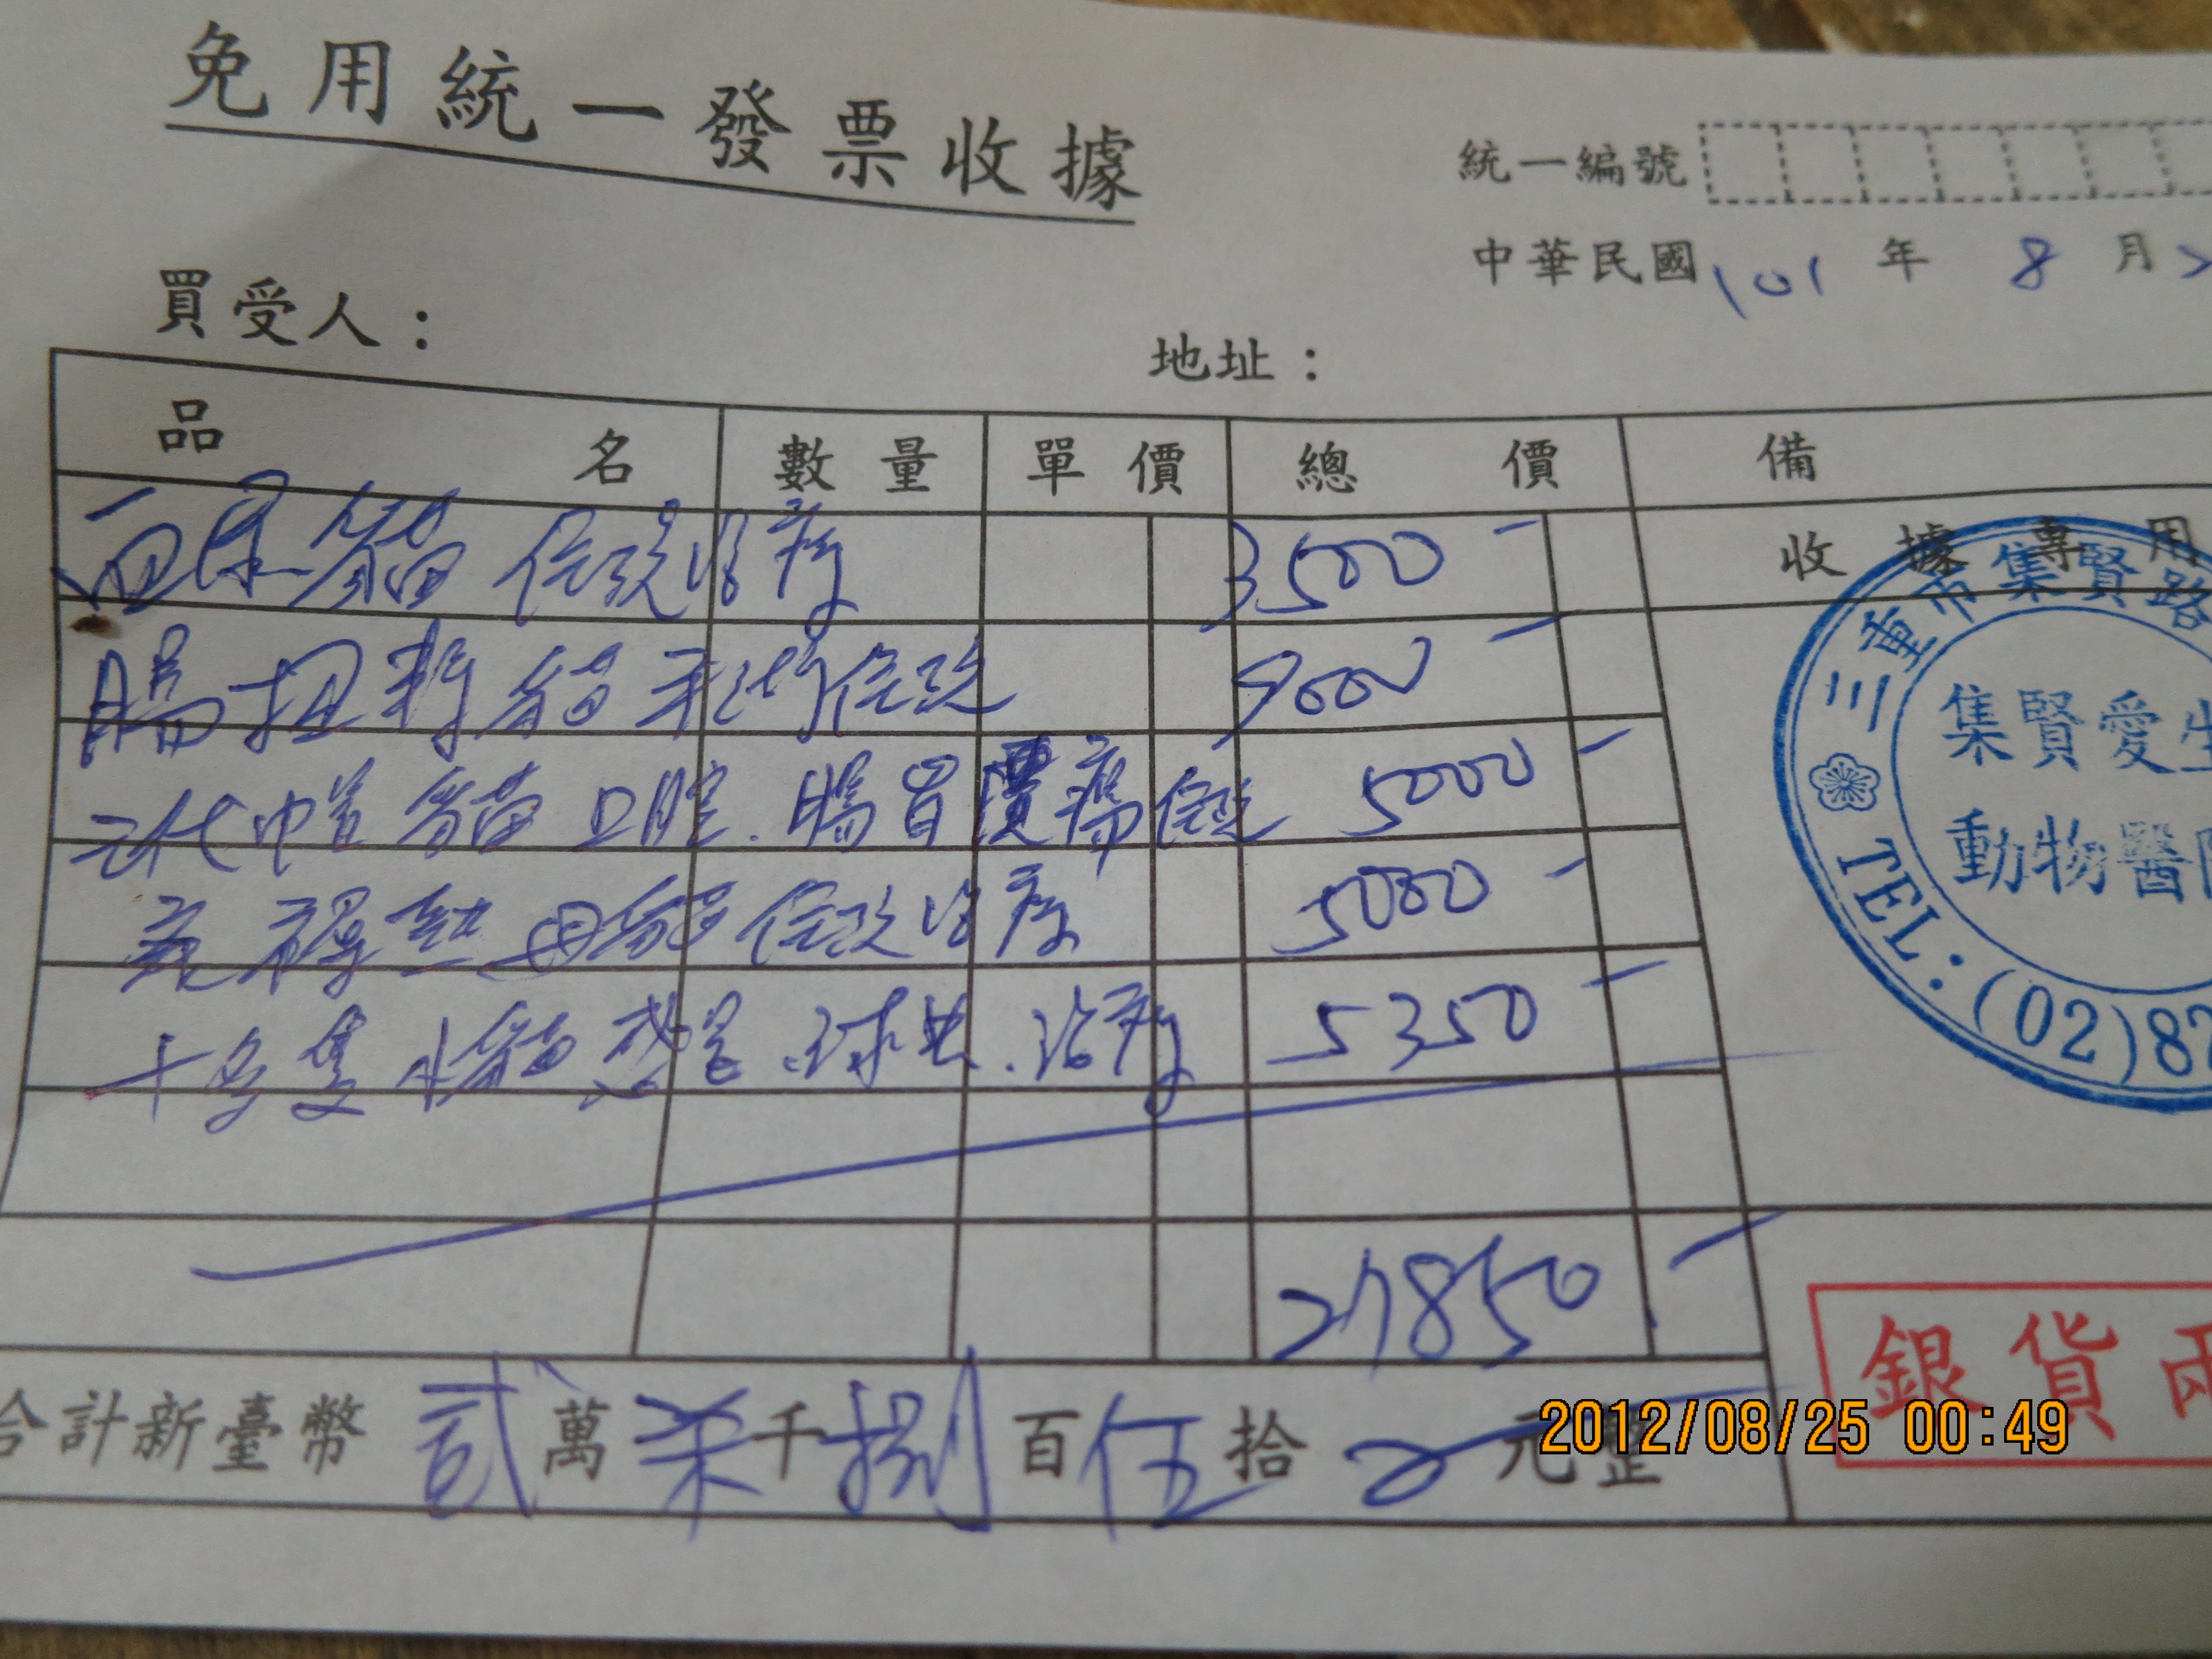 免用統一發票收據
統一編號
中華民國101年8月
買受人：
地址：
品名 數量 單價 總價 備
血尿貓住院治療 3500
收據專用
腸扭轉貓手術住院 9000
二代帽貓口腔.腸胃潰瘍住院 5000
母貓住院治療 5000
十多隻小貓感冒.球虫.治療 5350
27850
合計新臺幣貳萬柒千捌百伍拾元整
三重市集賢路
集賢愛生
動物醫院
TEL:(02)82
銀貨兩
2012/08/25 00:49